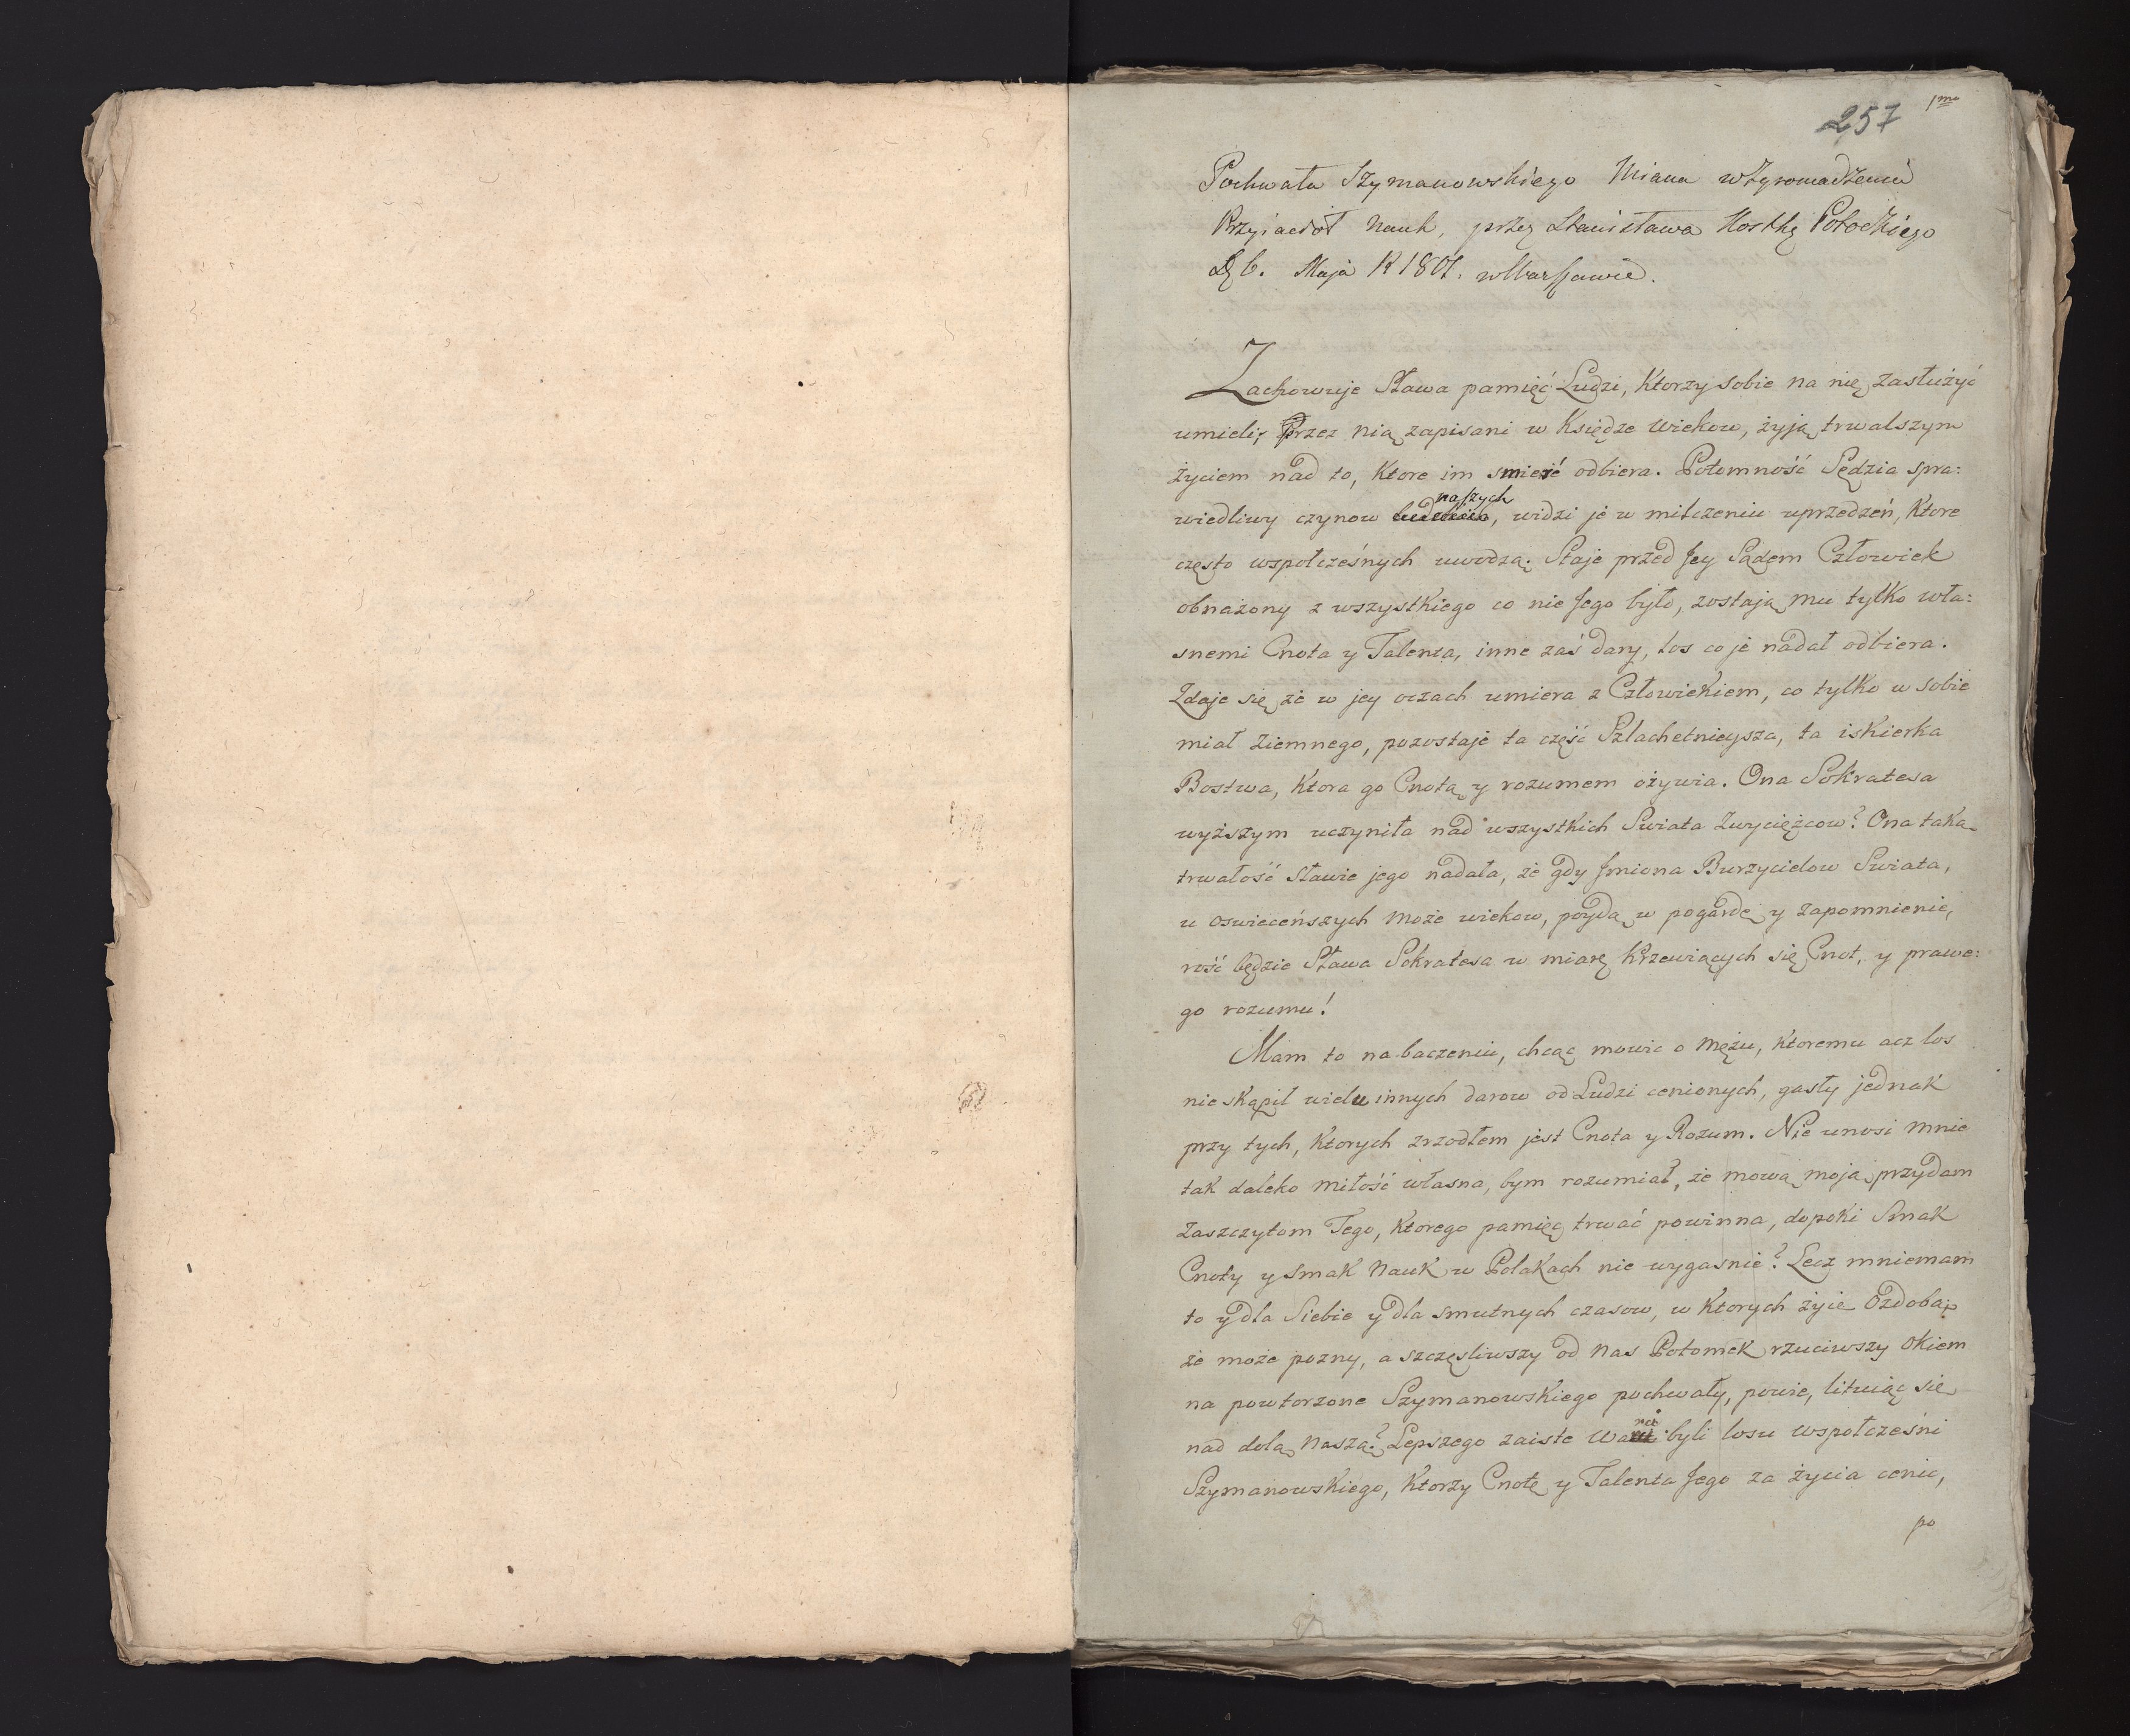 257 1mo
Pochwała Szymanowskiego Miana w Zgromadzeniu
Przyiacioł Nauk, przez Stanisława Kostkę Potockiego
D. 6. Maja R 1801. w Warszawie.
Zachowuje Sława pamięć Ludzi, Ktorzy sobie na nię zasłużyć
umieli; Przez nią zapisani w Księdze Wiekow, żyją trwalszym
życiem nad to, Ktore im smierć odbiera. Potomność Sędzia spra:
naszych
wiedliwy czynow ludzkich, widzi je w milczeniu uprzedzeń, Ktore
często wspołcześnych uwodzą. Staje przed Jey Sądem Człowiek
obnażony z wszystkiego co nie Jego było, zostają mu tylko wła:
snemi Cnota y Talenta, inne zaś dary, los co je nadał odbiera.
Zdaje się że w jey oczach umiera z Człowiekiem, co tylko w sobie
miał Ziemnego, pozostaje ta część Szlachetnieysza, ta iskierka
Bostwa, Ktora go Cnotą y rozumem ożywia. Ona Sokratesa
wyższym uczyniła nad wszystkich Swiata Zwyciężcow? Ona taką
trwałość Sławie jego nadała, że gdy Jmiona Burzycielow Swiata,
u oswieceńszych może wiekow, poydą w pogardę y zapomnienie,
rość będzie Sława Sokratesa w miarę Krzewiących się Cnot, y prawe:
go rozumu!
Mam to na baczeniu, chcąc mowic o mężu, Ktoremu acz los
nie skąpił wielu innych darow od Ludzi cenionych, gasły jednak
przy tych, Ktorych zrzodłem jest Cnota y Rozum. Nie unosi mnie
tak daleko miłość własna, bym rozumiał, że mową moją przydam
Zaszczytom Tego, Ktorego pamięc trwać powinna, dopoki Smak
Cnoty y Smak Nauk w Polakach nie wygasnie? Lecz mniemam
to y dla Siebie y dla smutnych czasow, w Ktorych żyie Ozdobą;
że może pozny, a szczęsliwszy od nas Potomek rzuciwszy okiem
na powtorzone Szymanowskiego pochwały, powie, lituiąc się
nad dolą naszą? Lepszego zaiste Warci byli losu wspołcześni
Szymanowskiego, Ktorzy Cnotę y Talenta Jego za życia cenic,
po